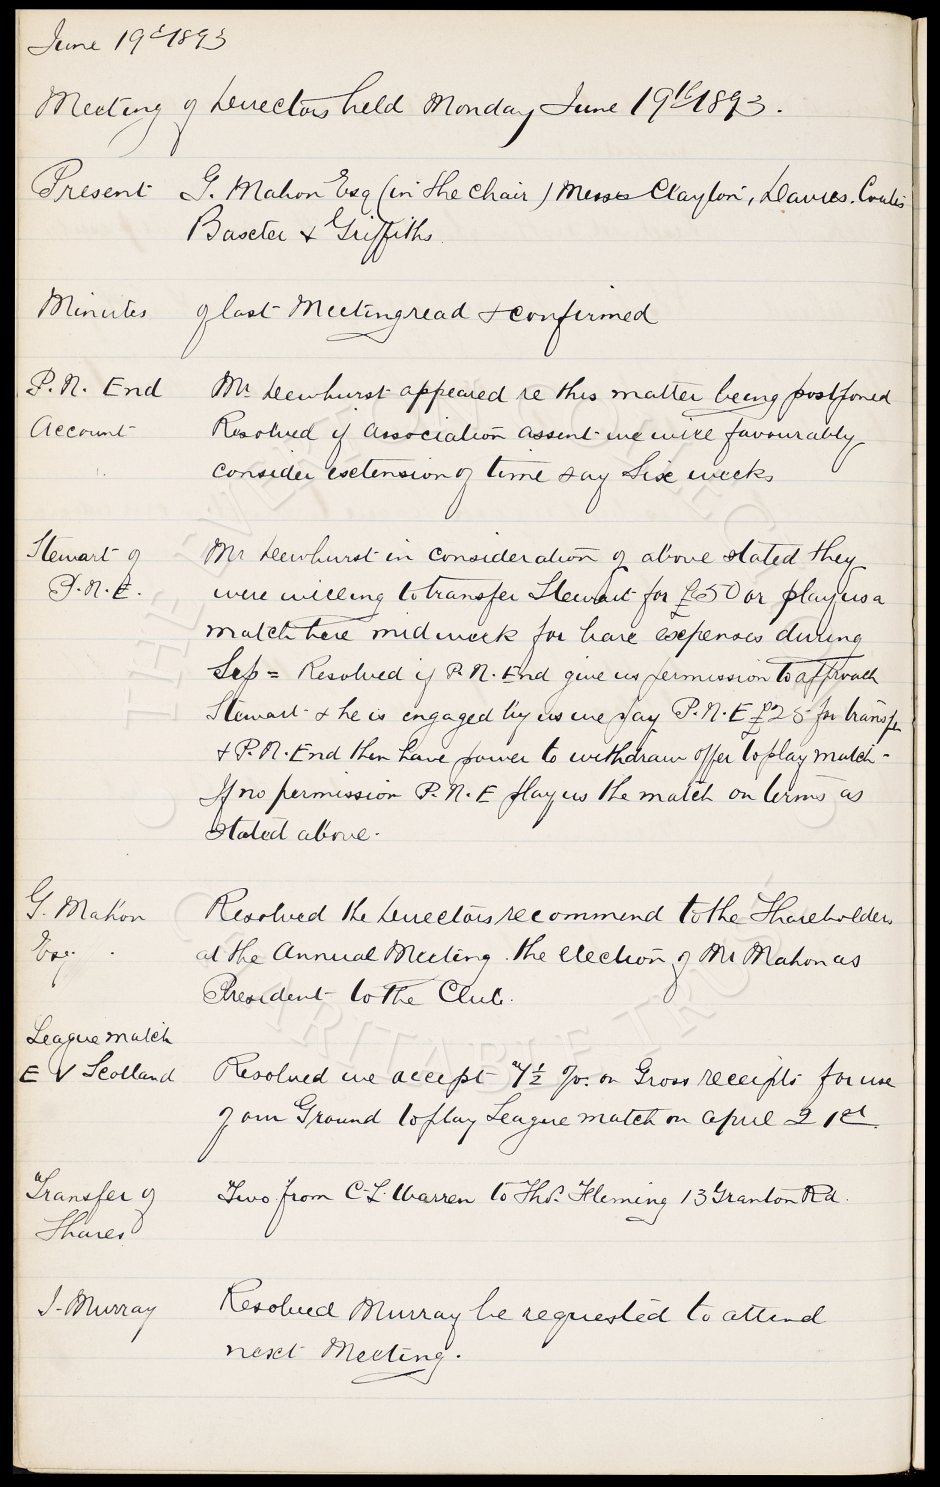 June 19th 1893
Meeting of Directors held Monday June 19th 1893.
Present G. Mahon Esq (in the chair) Messrs Clayton, Davies, Coates
Baxter & Griffiths.
Minutes of last Meeting read & confirmed
P.N. End Mr Dewhurst appeared re this matter being postponed
Account Resolved if Association assent we will favourably
consider extension of time say Six weeks
Stewart of Mr Dewhurst in consideration of above stated they
P.N.E. were willing to transfer Stewart for £50 or play us a
match here mid week for bare expenses during
Sep = Resolved if P.N. End give us permission to approach
Stewart & he is engaged by us we pay P.N.E £25 for transfer
& P.N. End then have power to withdraw offer to play match -
If no permission P.N.E play us the match on terms as
stated above.
G. Mahon Resolved the Directors recommend to the Shareholders
Esq. at the Annual Meeting the election of Mr Mahon as
President to the Club.
League match
E V Scotland Resolved we accept 7½ % on Gross receipts for use
of our Ground to play League match on April 21st.
Transfer of Two from C.L. Warren to Thos. Fleming 13 Granton Rd.
Shares
J. Murray Resolved Murray be requested to attend
next Meeting.
THE EVERTON COLLECTION
CHARITABLE TRUST